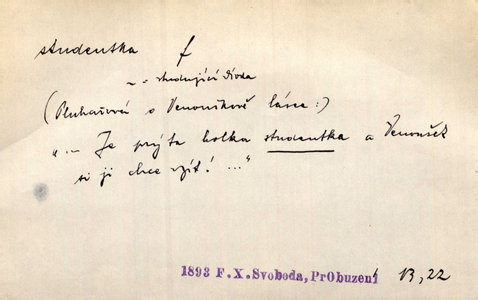 studentka f
~ ~ studující dívka
(Pluhařová o Venouškově lásce:)
"... Je prý ta holka studentka a Venoušek
si ji chce vzít! ..."
1893 F.X.Svoboda, PrObuzení B, 22